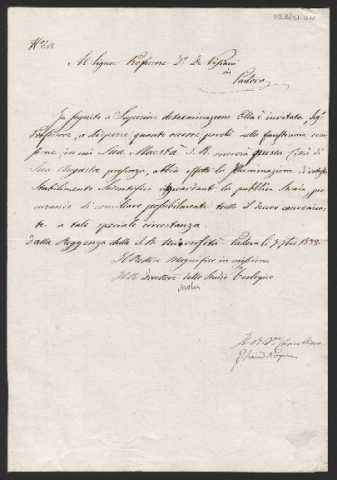 Al Signor Professore Dr. De Visiani
in
Padova
In seguito a Superiore determinazione Ella è invitata, Sig.r
Professore, a disporre quanto occorre perchè nella faustissima occa-
sione, in cui Sua Maestà I. R. onorerà questa Città di
Sua Augusta presenza, abbia effetto la illuminazione di cotesto
Stabilimento Scientifico riguardante la pubblica Strada, pro-
curando di conciliare possibilmente tutto il decoro conveniente
a tale speciale circostanza.
Dalla Reggenza della I. R. Università Padova li 7 1838
Il Rettore Magnifico in missione
Il Direttore dello Studio Teologico